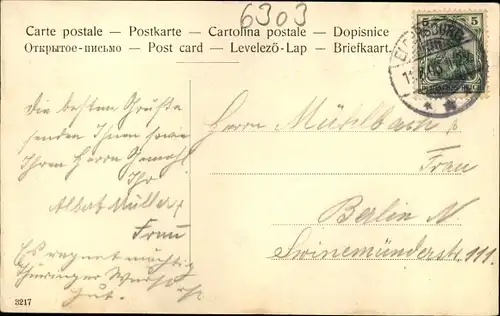 6303
Carte postale — Postkarte — Cartolina postale — Dopisnice
Открытое-письмо — Post card — Levelező-Lap — Briefkaart.
5 5
Die besten Grüße
senden Ihnen sowie
Ihren Herrn Gemahl
Ihr
Albert Müller
Frau
Es regnet mächtig
Thüringer
gut.
Herrn Mühlbach &
Frau
Berlin N
Swinemünderstr. 111.
3217